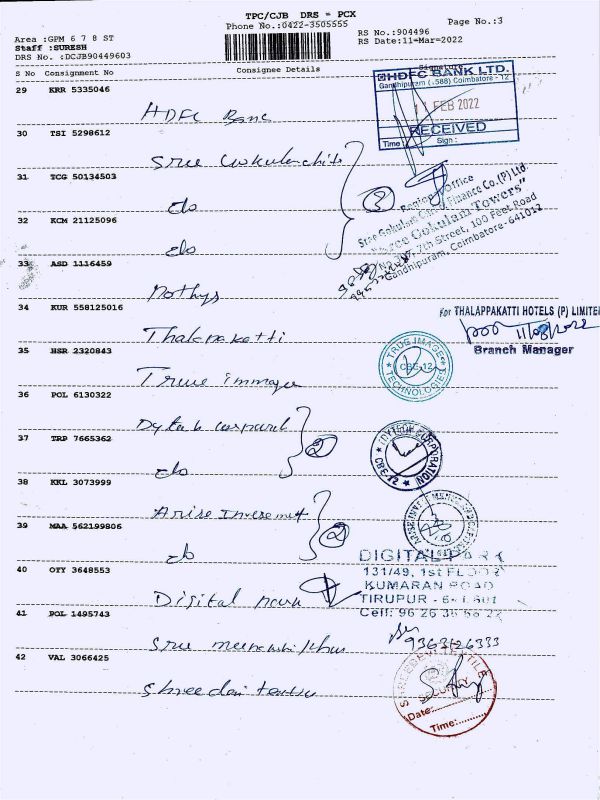 TPC/CJB DRS - PCX
Phone No.:0422-3505555
Page No.:3
Area :GPM 6 7 8 ST
Staff :SURESH
DRS No. :DCJB90449603
RS No.:904496
RS Date:11-Mar-2022
S No Consignment No Consignee Details Signature
29 KRR 5335046
HDFC Banc
HDFC BANK LTD.
Gandhipuram (.588) Coimbatore - 12
FEB 2022
RECEIVED
Time: Sign :
30 TSI 5298612
Sree Gokulam chits
31 TCG 50134503
do
3
Regional Office
Sree Gokulam Chit & Finance Co.(P) Ltd.
"Sree Gokulam Towers"
7th Street, 100 Feet Road
Gandhipuram, Coimbatore-641012
32 KCM 21125096
do
33 ASD 1116459
Pothys
34 KUR 558125016
Thalapakatti
For THALAPPAKATTI HOTELS (P) LIMITED
Branch Manager
35 HSR 2320843
True immage
TRUE IMAGE
TECHNOLOGIES
CBE-12
36 POL 6130322
37 TRP 7665362
do
2
CORPORATION
CBE-12
38 KKL 3073999
Arise Invesment
39 MAA 562199806
do
2
40 OTY 3648553
Digital park
DIGITAL PARK
131/49, 1st FLOOR
KUMARAN ROAD
TIRUPUR
Cell:
41 POL 1495743
Sree
9363126333
42 VAL 3066425
Shree
SECURITY
Date:
Time: